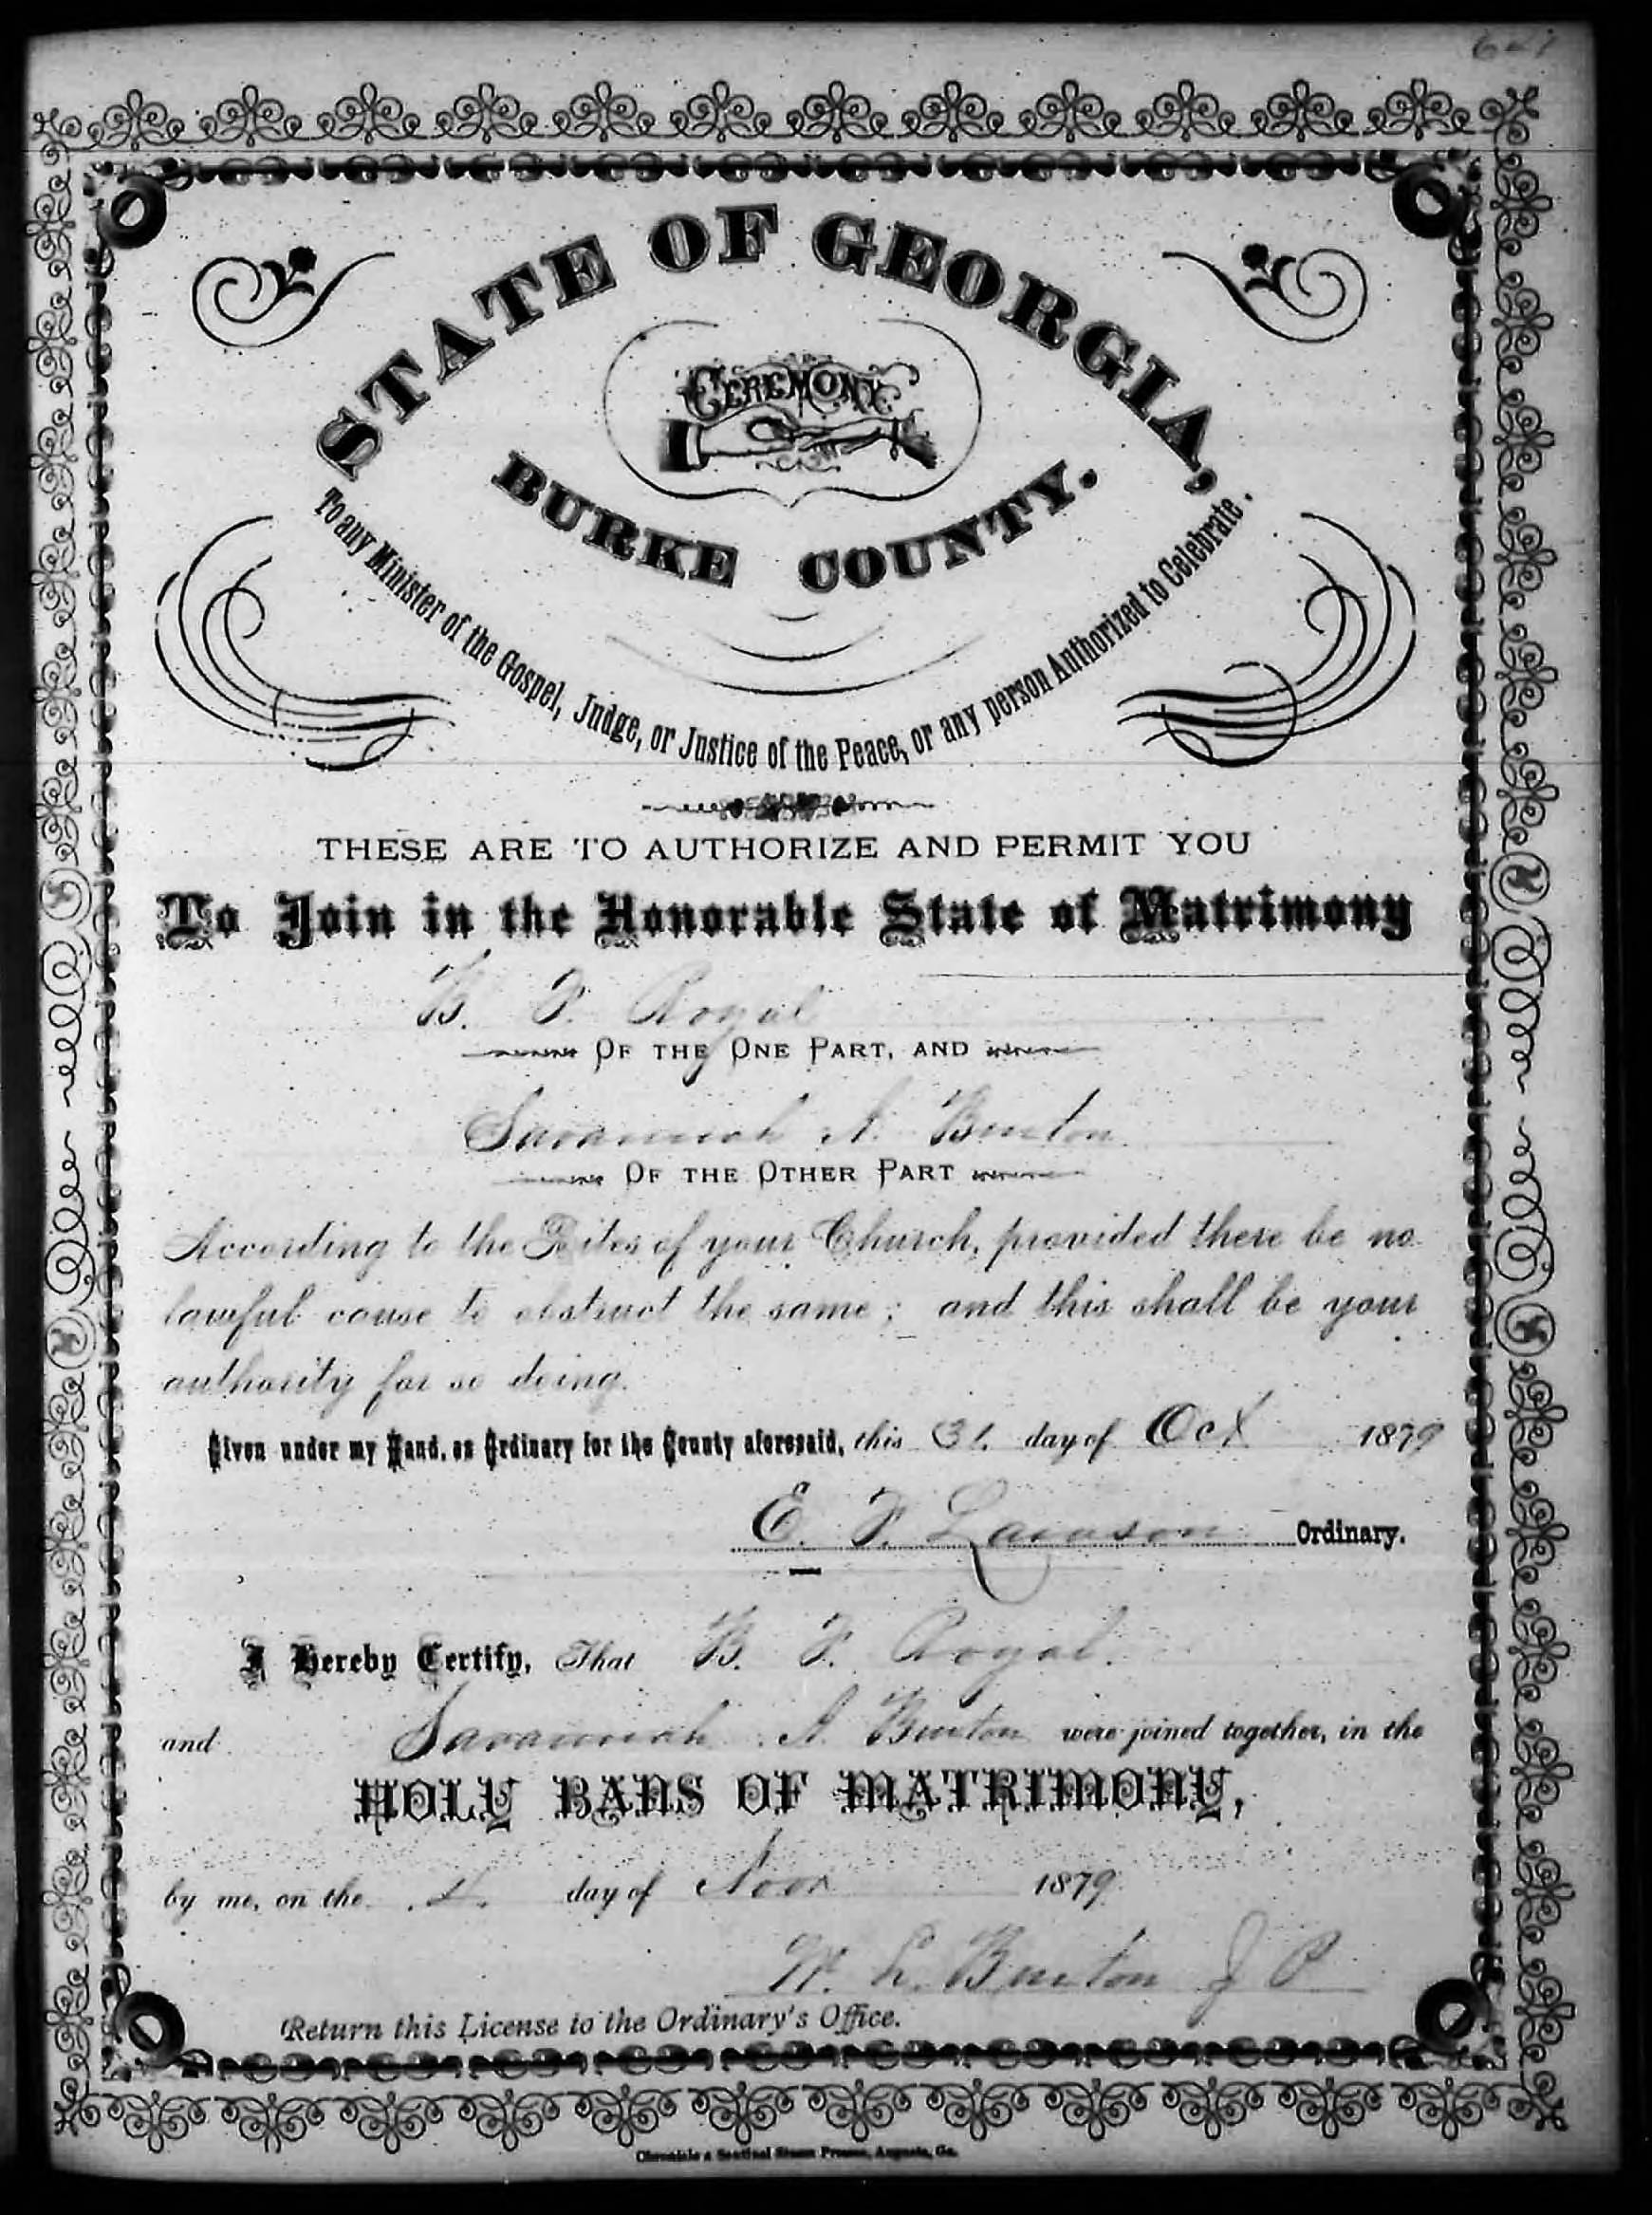 STATE OF GEORGIA,
CEREMONY
BURKE COUNTY.
To any Minister of the Gospel, Judge, or Justice of the Peace, or any person Authorized to Celebrate.
THESE ARE TO AUTHORIZE AND PERMIT YOU
To Join in the Honorable State of Matrimony
B. F. Royal
OF THE ONE PART, AND
Savannah A. Buxton
OF THE OTHER PART
According to the Rites of your Church, provided there be no
lawful cause to obstruct the same; and this shall be your
authority for so doing.
Given under my Hand, as Ordinary for the County aforesaid, this 31. day of Oct 1879
E. F. Lawson Ordinary.
I Hereby Certify, That B. F. Royal.
and Savannah A. Buxton were joined together, in the
HOLY BANS OF MATRIMONY,
by me, on the 4. day of Novr 1879
W. L. Buxton J P
Return this License to the Ordinary's Office.
Chronicle & Sentinel Steam Presses, Augusta, Ga.